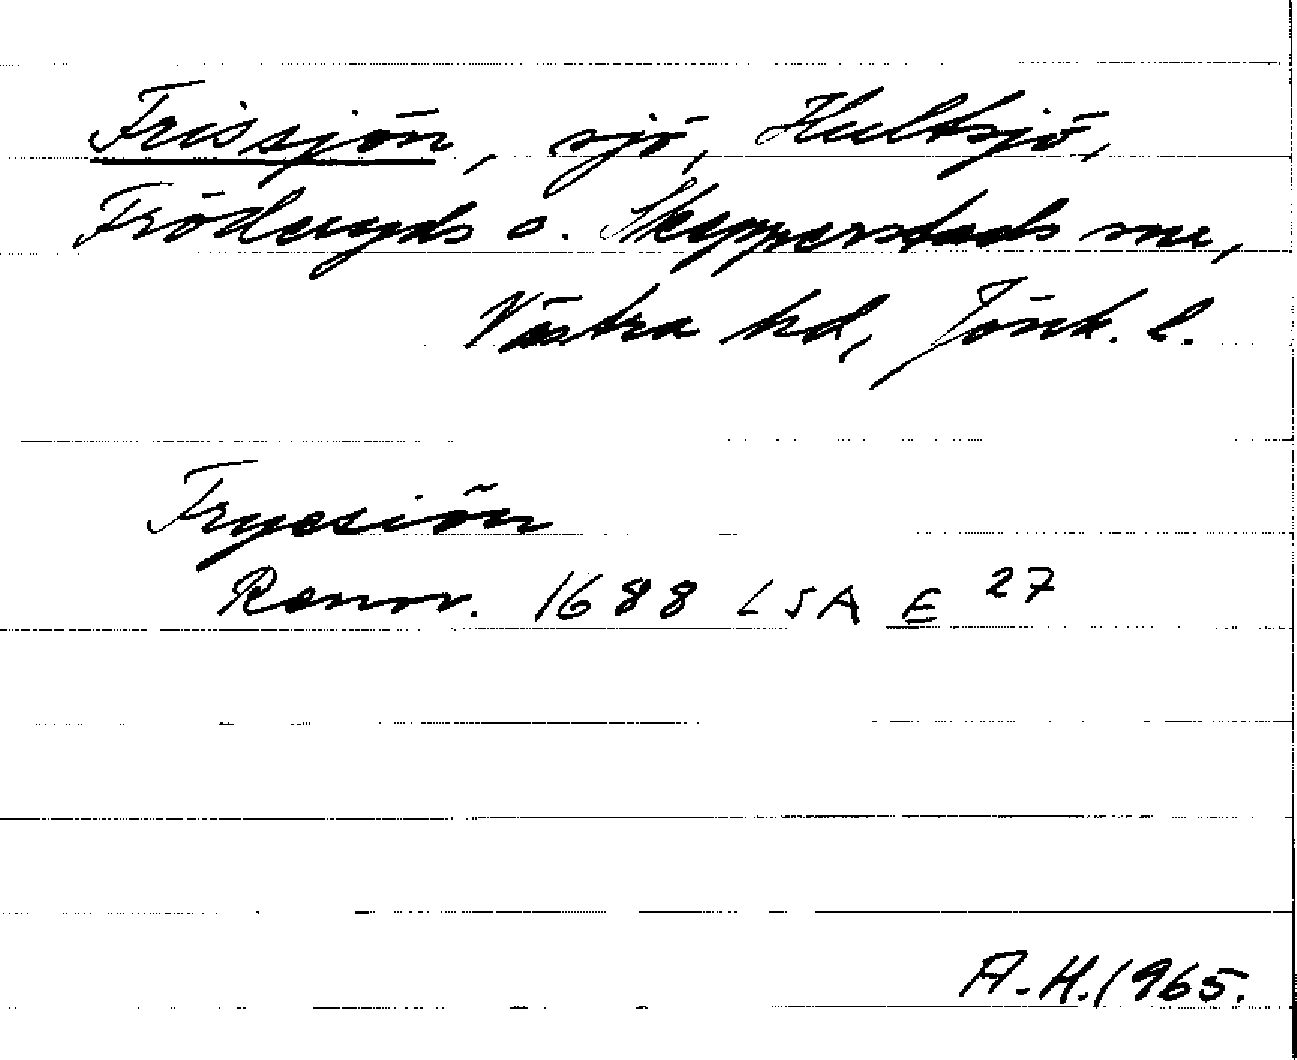 Frissjön, sjö, Hultsjö,
Fröderyds o. Skepperstads snr,
Västra hd, Jönk. l.
Frycsiön
Renov. 1688 LSA E 27
A.H. 1965.